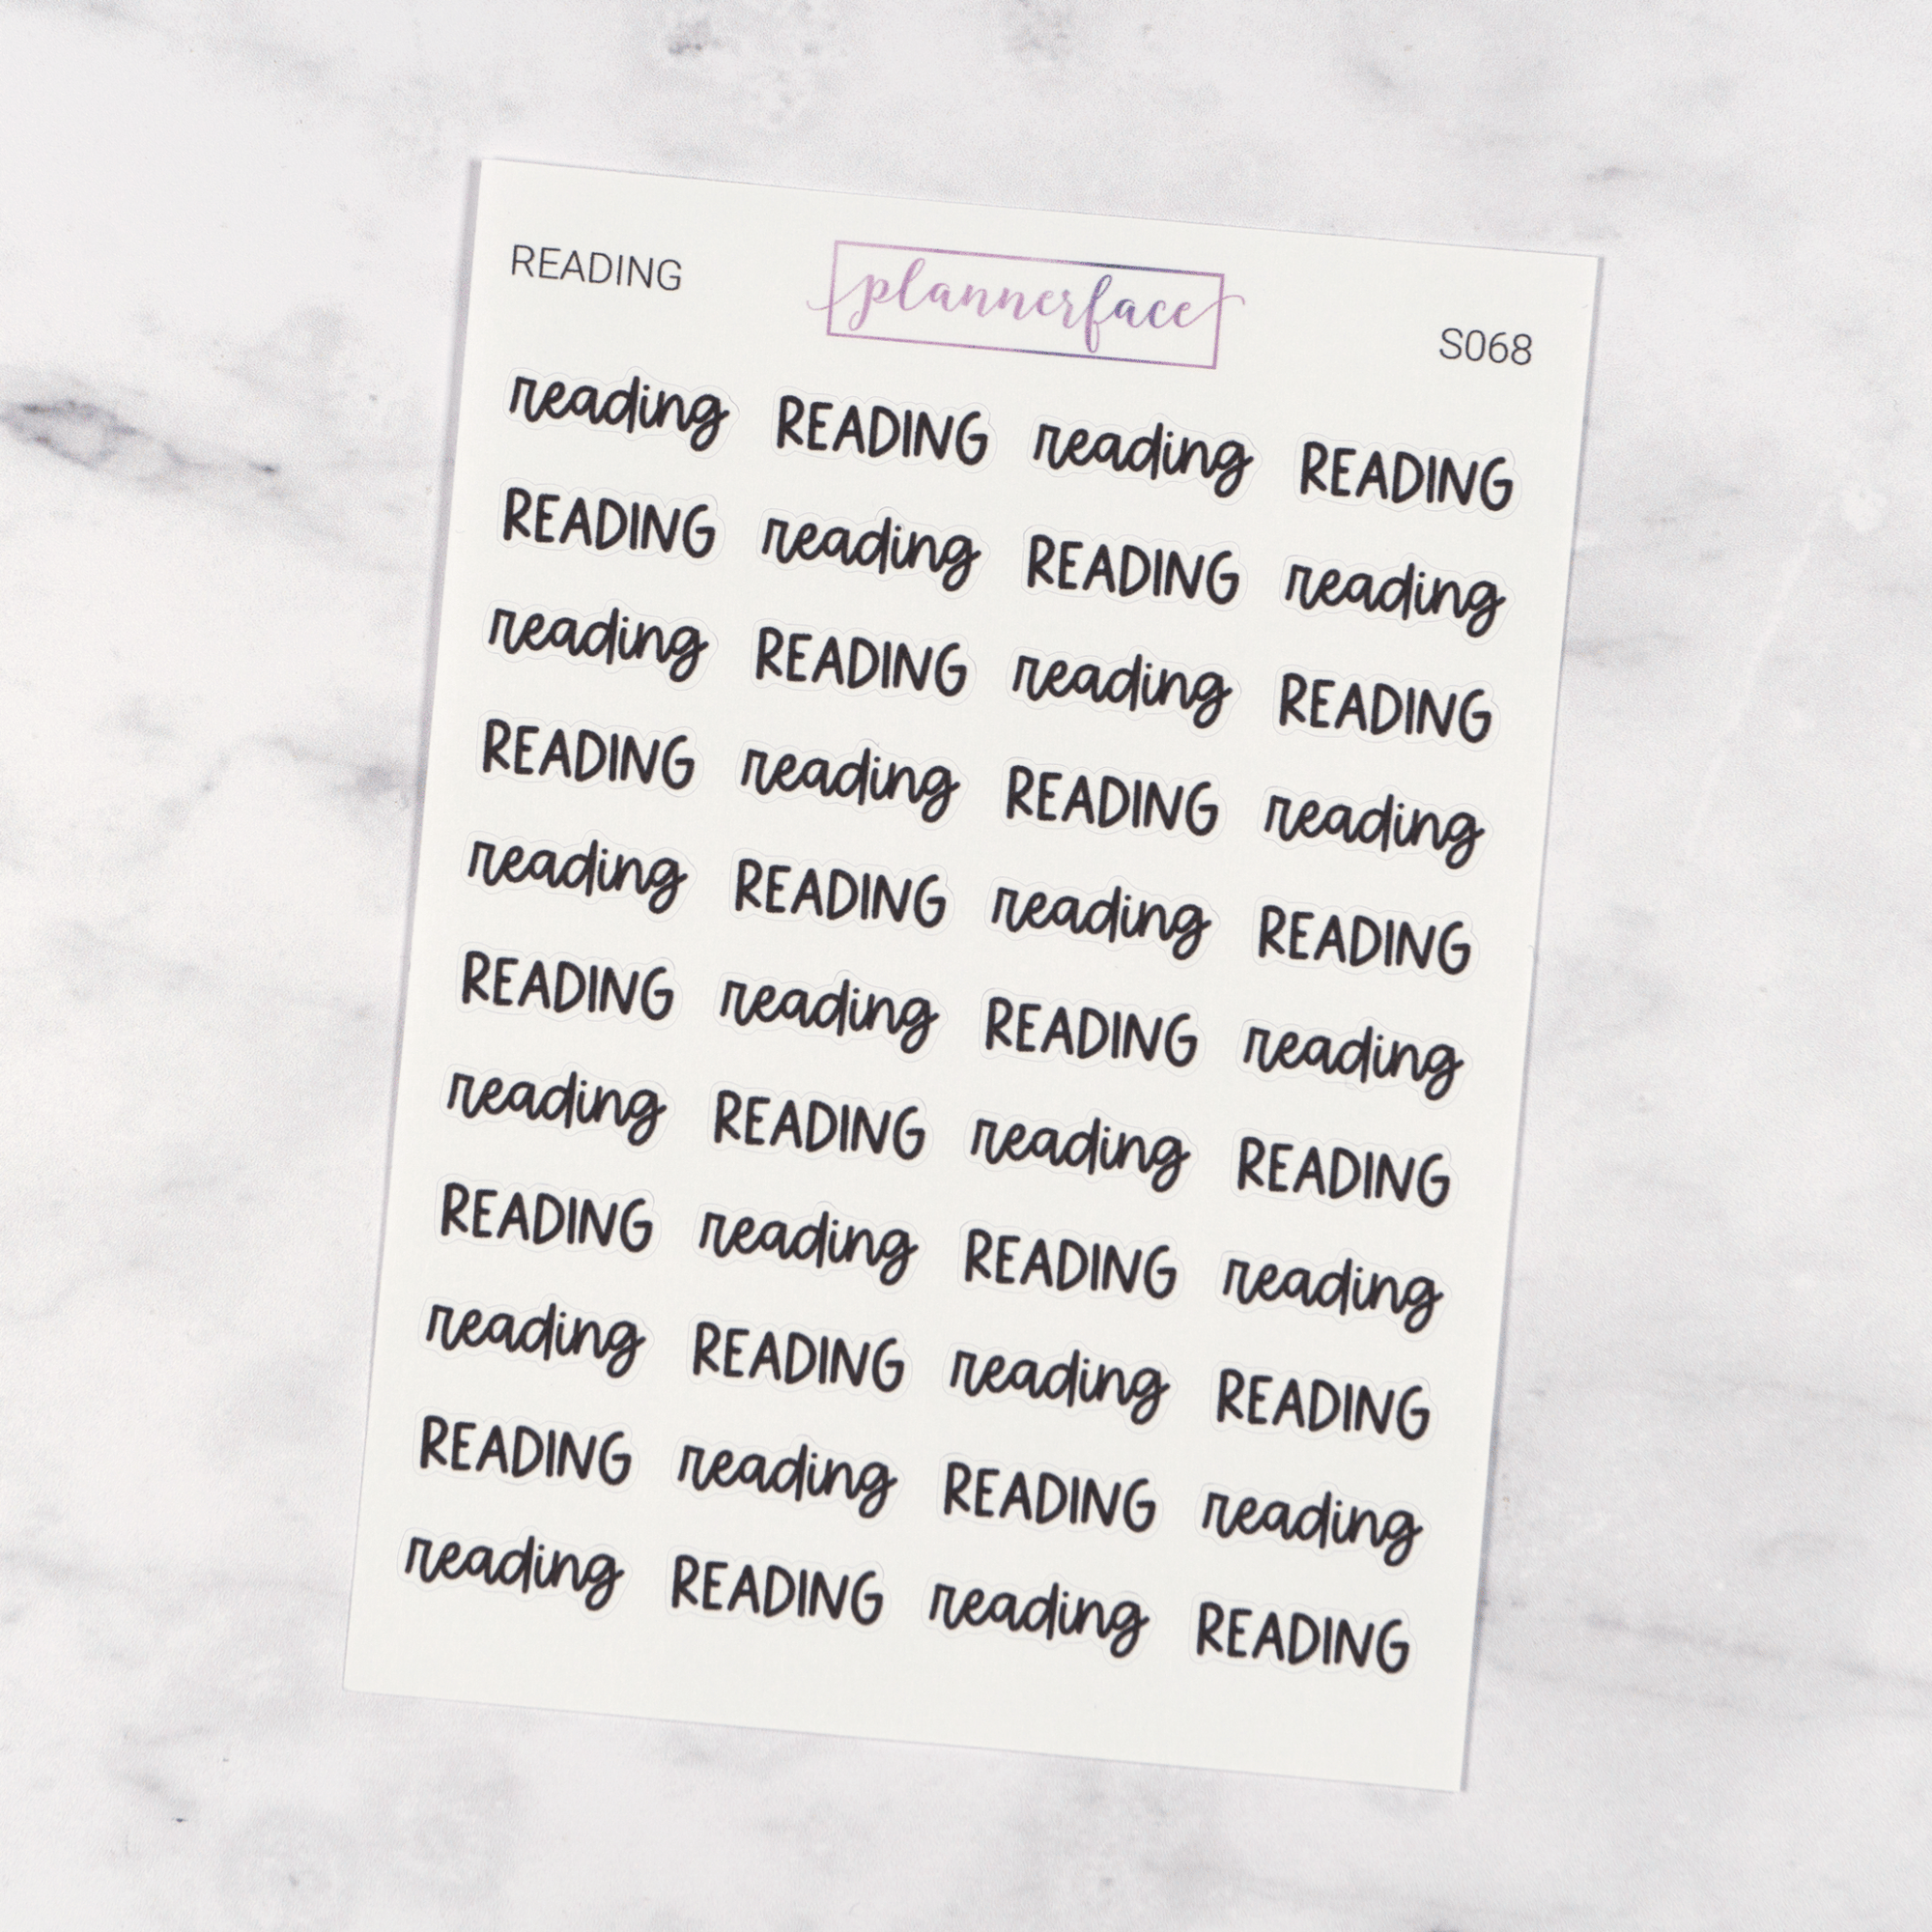 READING plannerface S068
reading READING reading READING
READING reading READING reading
reading READING reading READING
READING reading READING reading
reading READING reading READING
READING reading READING reading
reading READING reading READING
READING reading READING reading
reading READING reading READING
READING reading READING reading
reading READING reading READING